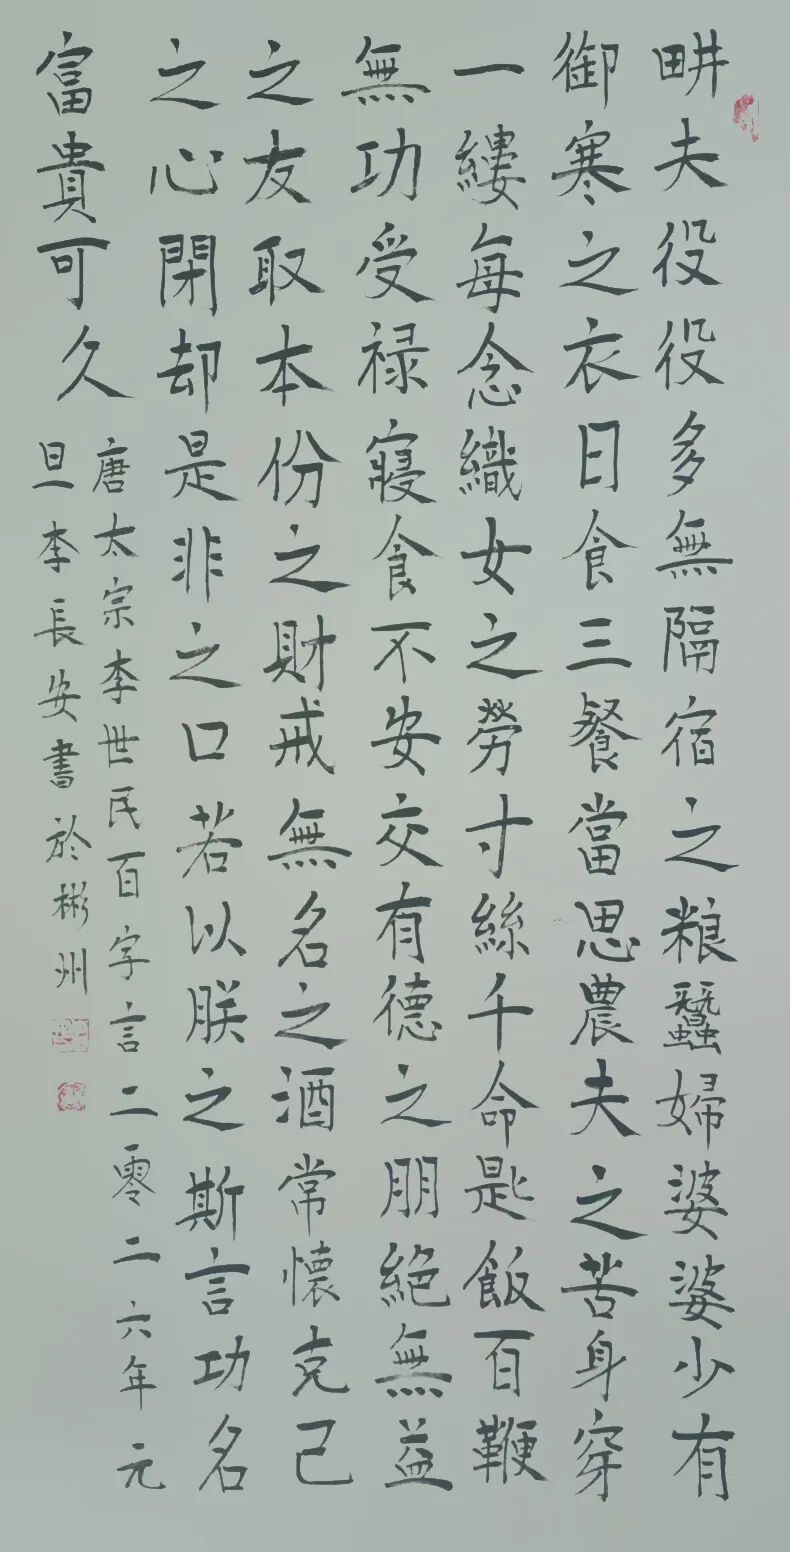 畊夫役役多無隔宿之粮蠶婦婆婆少有
御寒之衣日食三餐當思農夫之苦身穿
一縷每念織女之勞寸絲千命匙飯百鞭
無功受禄寢食不安交有德之朋絶無益
之友取本份之財戒無名之酒常懷克己
之心閉却是非之口若以朕之斯言功名
富貴可久
唐太宗李世民百字言二零二六年元
旦李長安書於彬州